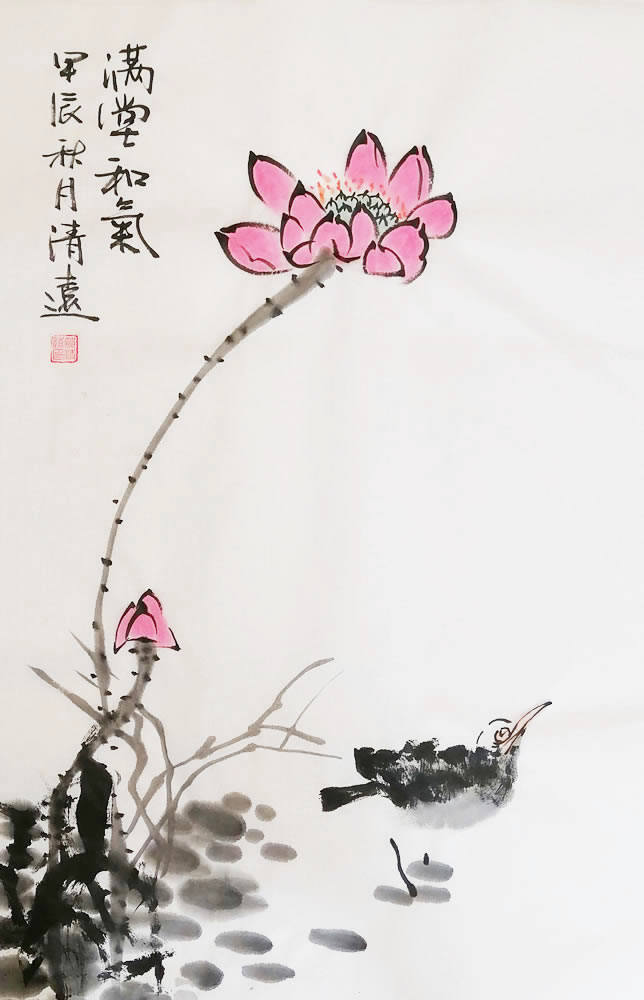 满堂和氣
甲辰秋月清遠